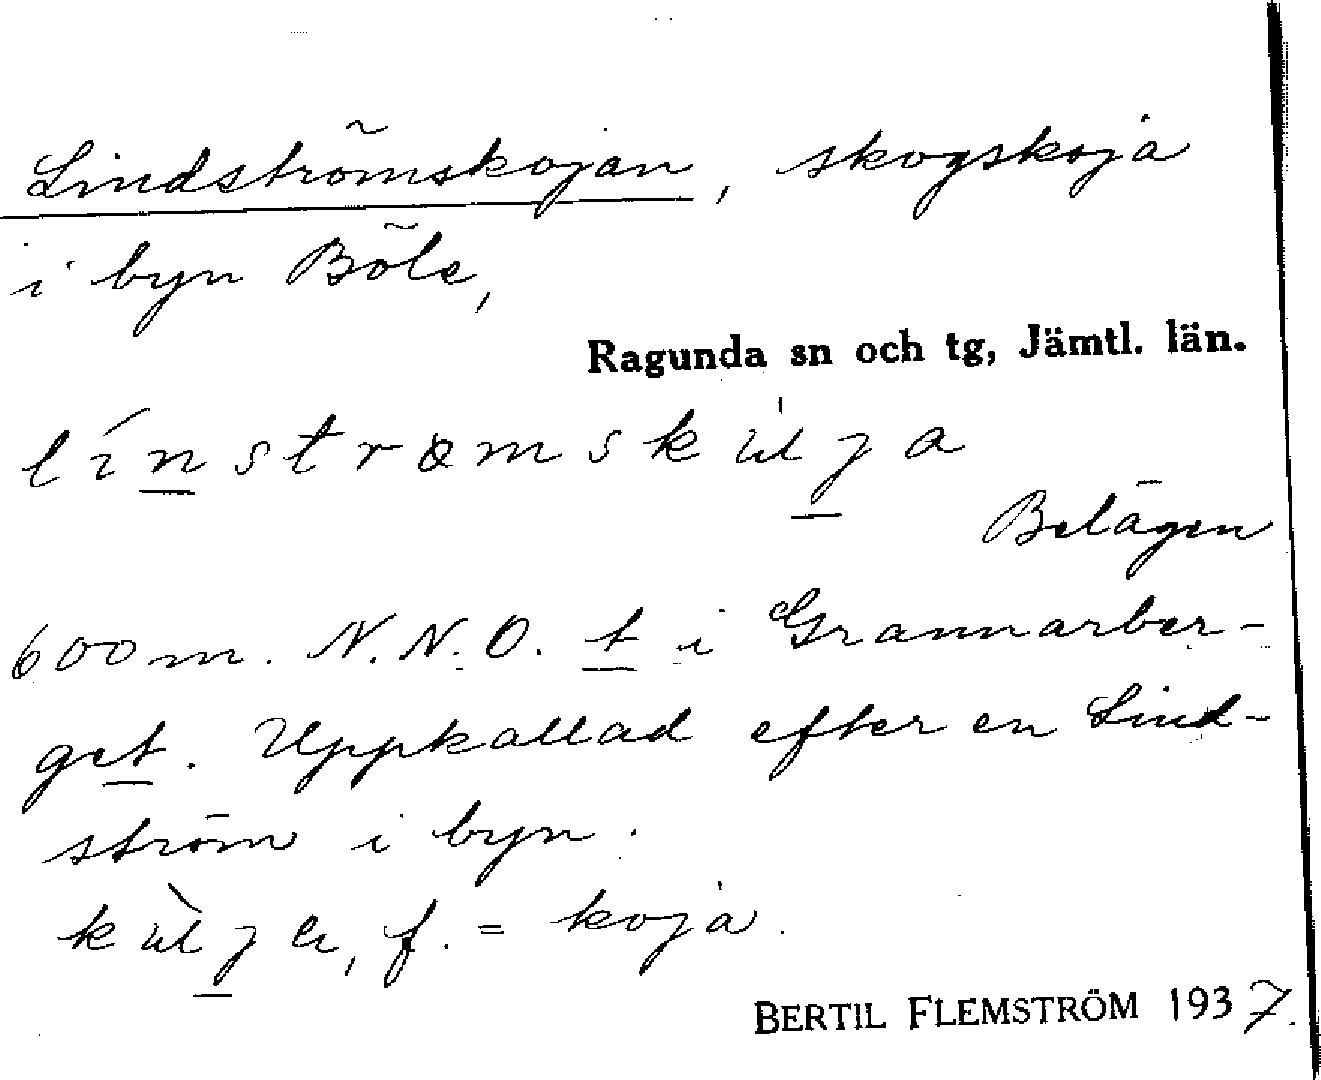 Lindströmskojan, skogskoja
i byn Böle,
Ragunda sn och tg, Jämtl. län.
Belägen
600 m. N.N.O. t i Grannarber-
get. Uppkallad efter en Lind-
ström i byn.
f. = koja.
BERTIL FLEMSTRÖM 1937.